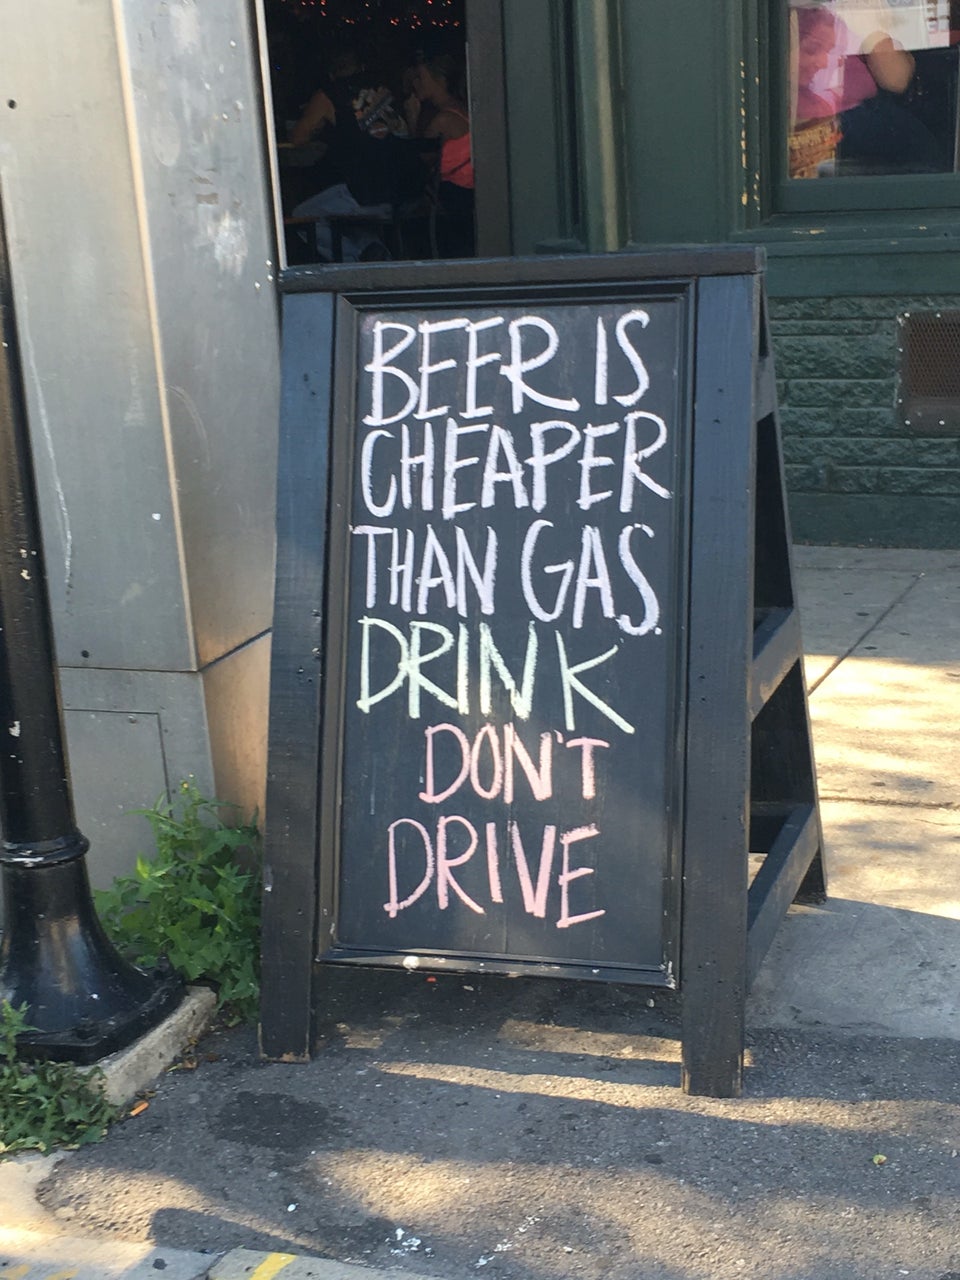 BEER IS
CHEAPER
THAN GAS.
DRINK
DON'T
DRIVE